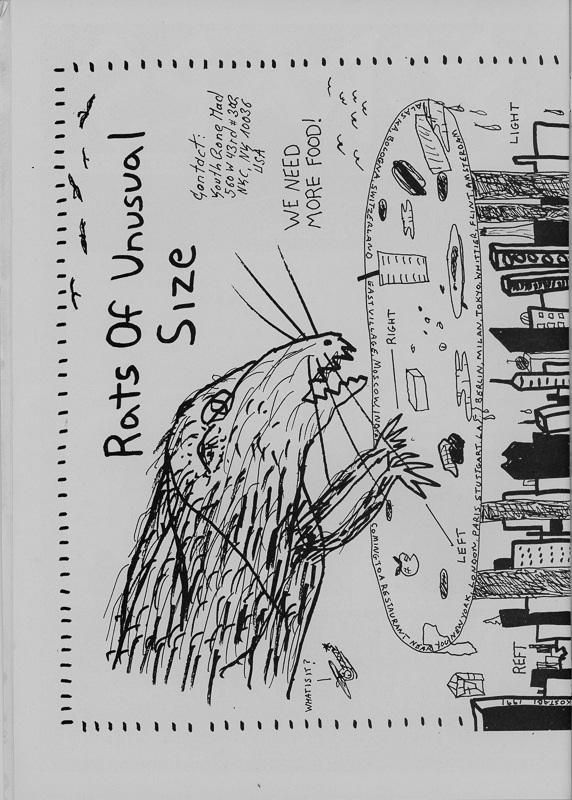 Rats Of Unusual
Size
Contact:
Youth Gone Mad
560 W 43rd #
NYC, NY 10036
USA
WE NEED
MORE FOOD!
ALASKA, BOLOGNA, SWITZERLAND
EAST VILLAGE, MOSCOW,
COMING TO A RESTAURANT NEAR YOU! NEW YORK, LONDON, PARIS, STUTTGART, L.A., BERLIN, MILAN, TOKYO, WHITTIER, FLINT, AMSTERDAM
RIGHT
LEFT
LIGHT
REFT
WHAT IS IT?